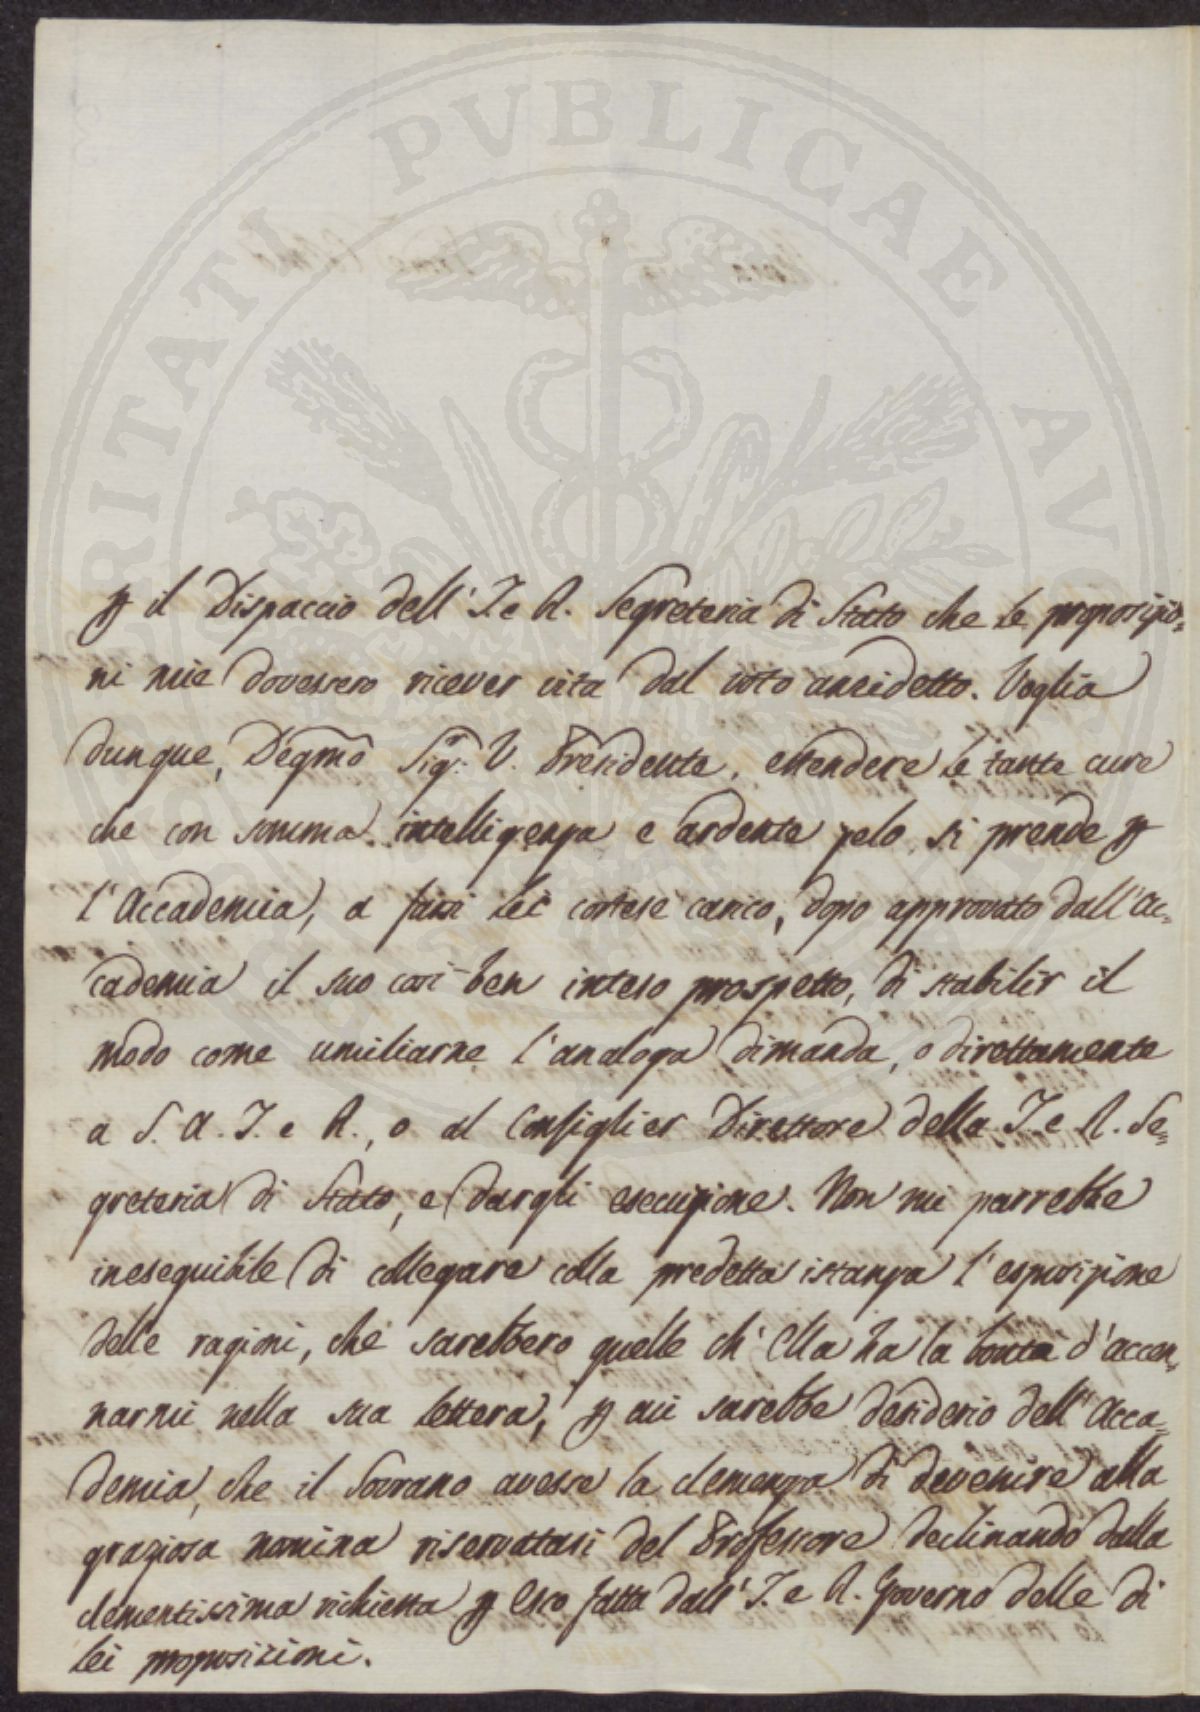 PROSPERITATI PVBLICAE AVGENDAE
p il Dispaccio dell'I. e R. Segreteria di Stato che le proposizio=
ni mie dovessero ricever vita dal voto anzidetto. Voglia
dunque, Degmo Sigr. V. Presidente, estendere le tante cure
che con somma intelligenza e ardente zelo si prende p
l'Accademia, a farsi lei cortese carico, dopo approvato dall'Ac=
cademia il suo così ben inteso prospetto, di stabilir il
modo come umiliarne l'analoga dimanda, o direttamente
a S. A. I. e R., o al Consiglier Direttore della I. e R. Se=
greteria di Stato, e dargli esecuzione. Non mi parrebbe
ineseguibile di collegare colla predetta istanza l'esposizione
delle ragioni, che sarebbero quelle ch'Ella ha la bontà d'accen=
narmi nella sua lettera, p cui sarebbe desiderio dell'Acca=
demia, che il Sovrano avesse la clemenza di devenire alla
graziosa nomina riservattasi del Professore declinando dalla
clementissima richiesta p Esso fatta dall'I. e R. Governo delle di
lei proposizioni.